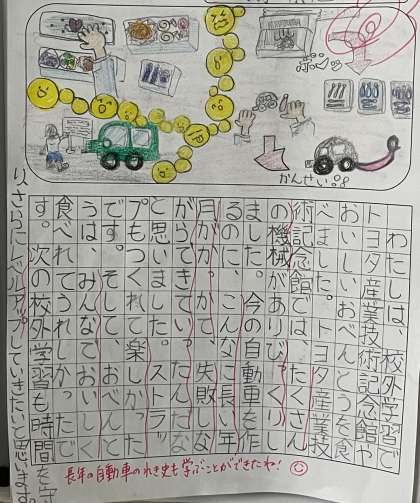 かんせい!!
わたしは、校外学習で
トヨタ産業技術記念館や
おいしいおべんとうを食
べました。トヨタ産業技
術記念館では、たくさん
の機械がありびっくりし
ました。今の自動車を作
るのに、こんなに長い年
月がかかって、失敗しな
がらできていったんだな
と思いました。ストラッ
プもつくれて楽しかった
です。そして、おべんと
うは、みんなでおいしく
食べれてうれしかったで
す。次の校外学習も時間を守
り、さらにレベルアップしていきたいと思います。
長年の自動車のれき史も学ぶことができたね!